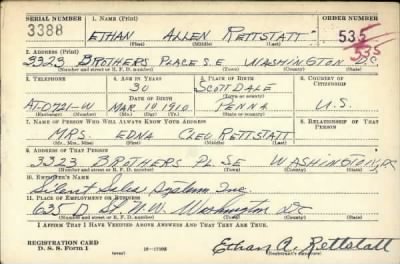 SERIAL NUMBER 1. NAME (Print) ORDER NUMBER
3388 ETHAN ALLEN RETTSTATT 535
(First) (Middle) (Last) 535
2. ADDRESS (Print)
3323 BROTHERS PLACE S.E. WASHINGTON D.C.
(Number and street or R. F. D. number) (Town) (County) (State)
3. TELEPHONE 4. AGE IN YEARS 5. PLACE OF BIRTH 6. COUNTRY OF CITIZENSHIP
30 SCOTTDALE
AT-0721-W DATE OF BIRTH (Town or county)
MAR 10 1910 PENNA U.S.
(Exchange) (Number) (Mo.) (Day) (Yr.) (State or country)
7. NAME OF PERSON WHO WILL ALWAYS KNOW YOUR ADDRESS 8. RELATIONSHIP OF THAT PERSON
MRS. EDNA CLEO RETTSTATT
(Mr., Mrs., Miss) (First) (Middle) (Last)
9. ADDRESS OF THAT PERSON
3323 BROTHERS PL. SE WASHINGTON, DC
(Number and street or R. F. D. number) (Town) (County) (State)
10. EMPLOYER'S NAME
Silent Sales System Inc.
11. PLACE OF EMPLOYMENT OR BUSINESS
635 D St. N.W. Washington DC
(Number and street or R. F. D. number) (Town) (County) (State)
I AFFIRM THAT I HAVE VERIFIED ABOVE ANSWERS AND THAT THEY ARE TRUE.
REGISTRATION CARD
D. S. S. Form 1 Ethan A. Rettstatt
(Registrant's signature)